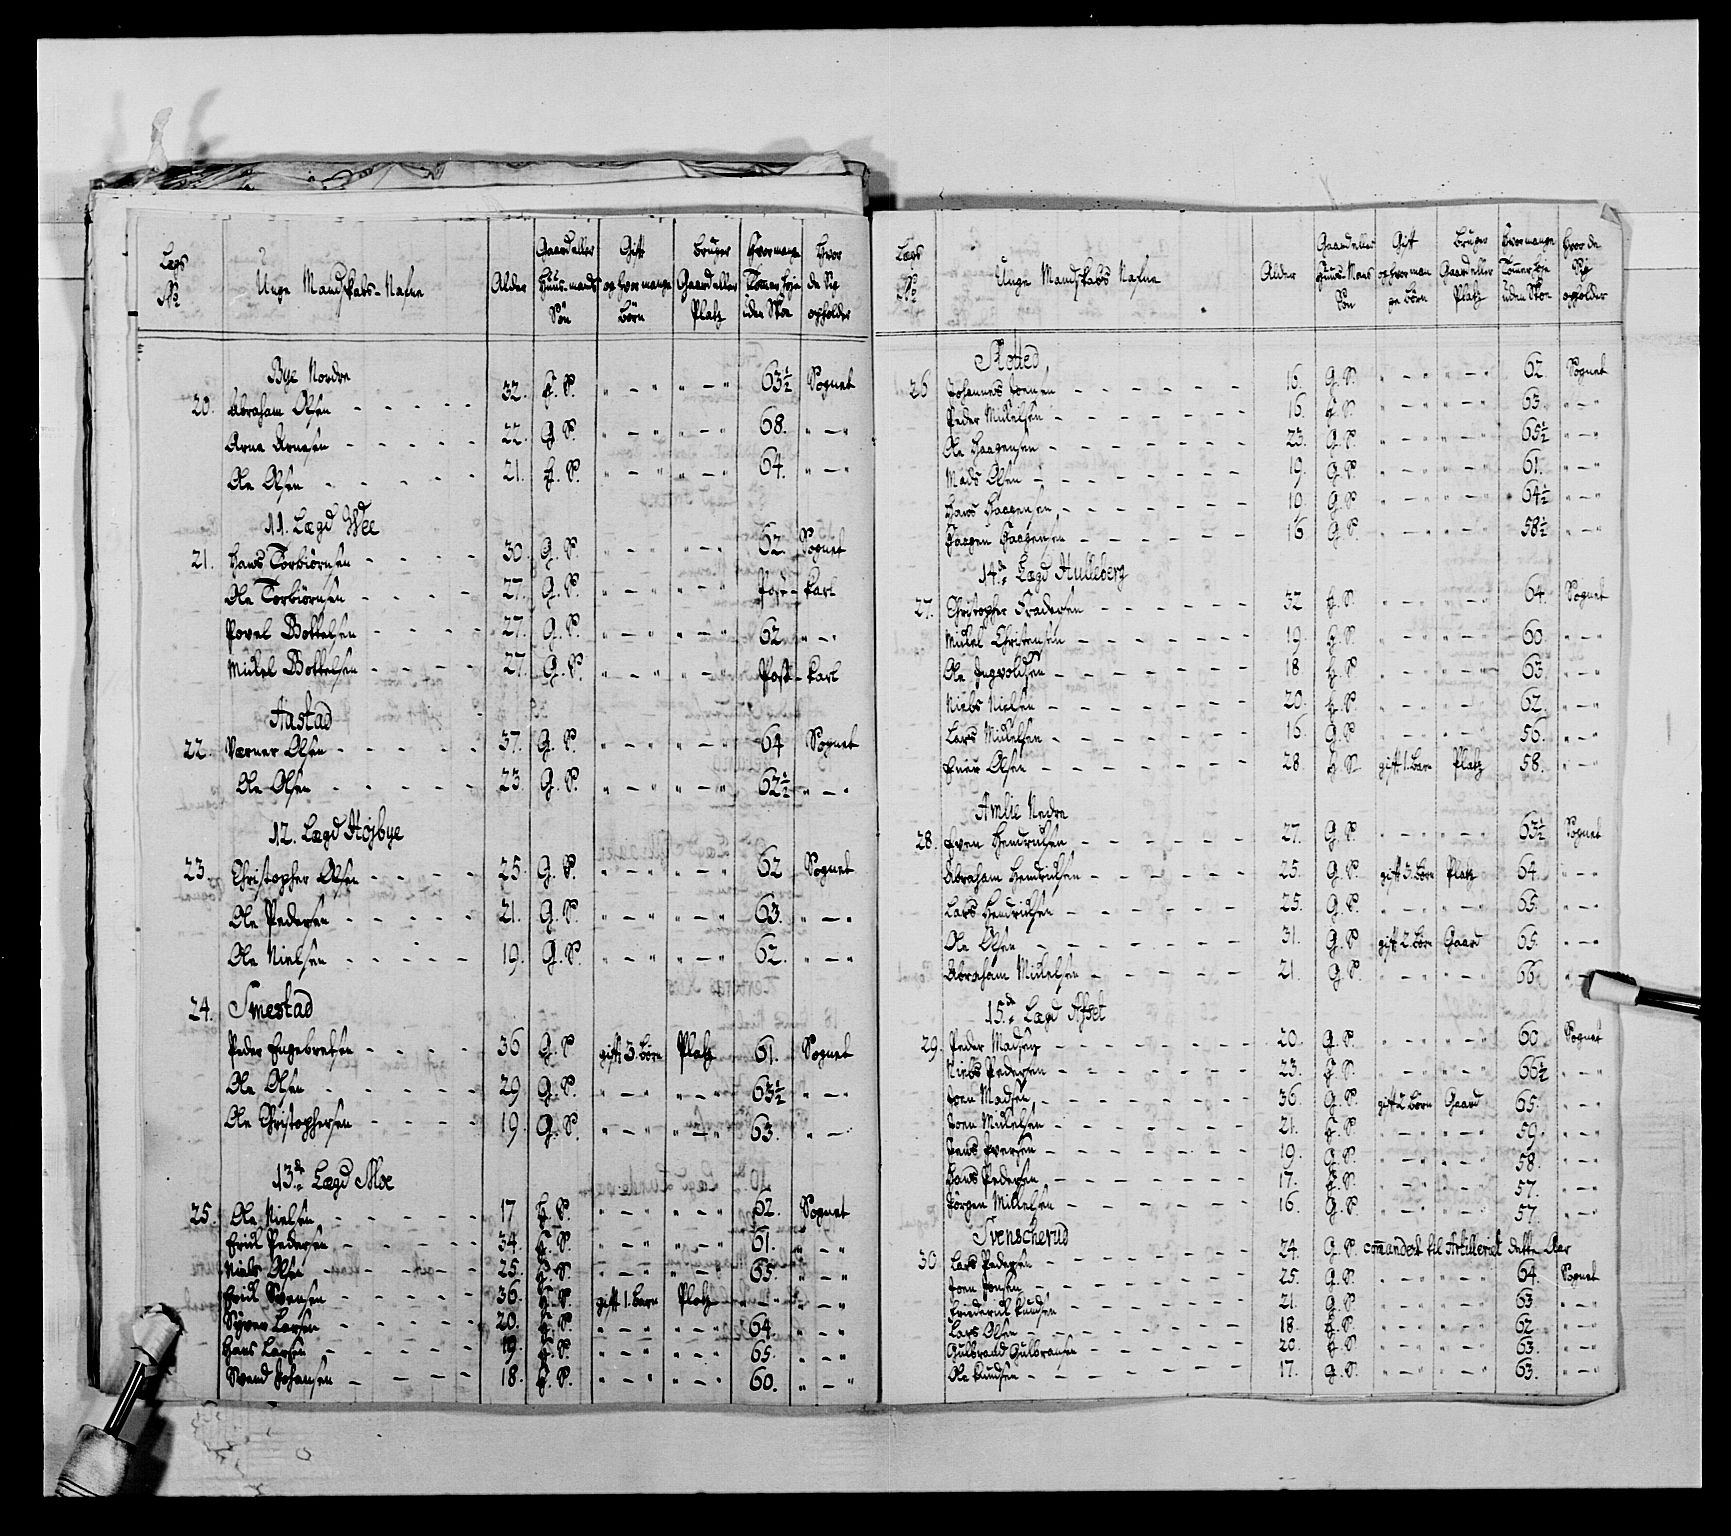 Lægs No | Unge Mandskabs-Nafne | Alder | Gaard eller Huus-mands Søn | Gift og hvor mange Børn | Bruger Gaard eller Platz | Hvor mange Tomer høje uden Skoe | Hvor de Sig opholder
Bye Nordre
20. Abraham Olsen - - - - - 32. H. S. " - " " - " 63½ Sognet
Arne Arnesen - - - - - 22. G S. " - " " - " 68. " - "
Ole Olsen - - - - - 21. H. S. " - " " - " 64. " - "
11. Lægd Wee
21. Hans Torbiörnsen - - - - 30. G. S. " - " " - " 62. Sognet
Ole Torbiörnsen - - - - 27. G. S. " - " " - " Post-Karl
Povel Bottelsen - - - - 27. G. S. " - " " - " 62. " - "
Mikel Bottelsen - - - - 27. G. S. " - " " - " Post-Karl
Aastad
22. Værner Olsen - - - - 37. G. S. " - " " - " 64 Sognet
Ole Olsen - - - - - 23 G. S. " - " " - " 62½ " - "
12. Lægd Højbye
23. Christopher Olsen - - - - 25 G. S. " - " " - " 62 Sognet
Ole Pedersen - - - - - 21. G. S. " - " " - " 63. " - "
Ole Nielsen - - - - - 19. G. S. " - " " - " 62. " - "
24. Smestad
Peder Engebretsen - - - - 36 G. S gift 3. Börn Platz 61. Sognet
Ole Olsen - - - - - 29 G. S. " - " " - " 63½ " - "
Ole Christophersen - - - - 19. G. S. " - " " - " 63. " - "
13de Lægd Moe
25. Ole Nielsen - - - - - 17 H. S. " - " " - " 62. Sognet
Erik Pedersen - - - - - 34. H. S. " - " " - " 61. " - "
Niels Olsen - - - - - 25. H. S. " - " " - " 65. " - "
Erik Svensen - - - - - 36. H. S. gift 1. Barn Platz " - " " - "
Syver Larsen - - - - - 20. H. S. " - " " - " 64. " - "
Hans Larsen - - - - - 19. H. S. " - " " - " 65. " - "
Svend Johansen - - - - 18. H. S. " - " " - " 60. " - "
Lægs No | Unge Mandskabs Nafne | Alder | Gaard eller Huus-Mans Søn | Gift og hvor mange Børn | Bruger Gaard eller Platz | Hvor mange Tomer høje uden Skoe | Hvor de Sig opholder
26 Johannes Joensen - - - - - - 16. G. S. " - " " - " 62 Sognet
Peder Mikelsen - - - - - - 16. H. S. " - " " - " 63. " - "
Ole Haagensen - - - - - - 23. G. S. " - " " - " 65½ " - "
Mads Olsen - - - - - - 19. G. S. " - " " - " 61. " - "
Hans Haagensen - - - - - - G. S. " - " " - " 64½ " - "
Haagen Haagensen - - - - - - 16 G. S. " - " " - " 58½ " - "
14de Lægd Hulleberg
27. Christopher - - - - - 32 H. S. " - " " - " 64. Sognet
Mikel Christensen - - - - - - 19. H. S. " - " " - " 60. " - "
Ole Ingvoldsen - - - - - - 18 H. S. " - " " - " 63. " - "
Niels Nielsen - - - - - - 20. H. S. " - " " - " 62. " - "
Lars Mikelsen - - - - - - 16. G. S. " - " " - " 56. " - "
Olsen - - - - - - 28. H S. gift 1. Barn Platz 58. " - "
Amlie Nedre
28. Even Hendriksen - - - - - - 27. G. S. " - " " - " 63½ Sognet
Abraham Hendriksen - - - - - - 25. G. S. gift 3. Börn Platz 64. " - "
Lars Hendriksen - - - - - - 25. G. S. " - " " - " 65. " - "
Ole Olsen - - - - - - 31. G. S gift 2. Börn Gaard 65. " - "
Abraham Mikelsen - - - - - - 21. G. S. " - " " - " 66. " - "
15de Lægd Afset
29. Peder Madsen - - - - - - 20. G. S. " - " " - " 60. Sognet
Niels Pedersen - - - - - - 23. H. S. " - " " - " 66½ " - "
Joen Madsen - - - - - - 36. G. S. gift 2 Børn Gaard 65. " - "
Joen Mikelsen - - - - - - 21. H. S. " - " " - " 59. " - "
Jens Iversen - - - - - - 19. G. S. " - " " - " 58. " - "
Hans Pedersen - - - - - - 17. H. S. " - " " - " 57. " - "
Jörgen Mikkelsen - - - - - - 16. G. S. " - " " - " 57. " - "
Svenscherud
30. Lars Pedersen - - - - - - 24. G. S. comanderet til Artilleriet dette Aar
Joen Jonsen - - - - - - 25. G. S. " - " " - " 64. Sognet
Friederik Knudsen - - - - - - 21. G. S. " - " " - " 63 " - "
Lars Olsen - - - - - - 18. H. S. " - " " - " 62. " - "
Gulbrand Gulbransen - - - - - - 20. H. S. " - " " - " 63. " - "
Ole Knudsen - - - - - - 17. G. S. " - " " - " 63. " - "